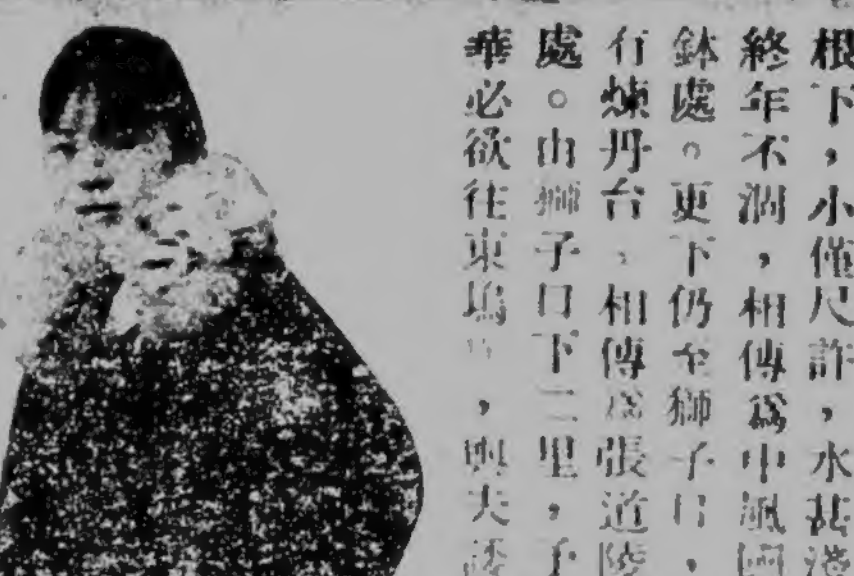 根下，小僅尺許，水甚淺
終年不涸，相傳爲中風國
鉢處。更下仍至獅子口，
有煉丹台，相傳爲張道陵
處。由獅子口下二里，予
華必欲往東塢，輿夫